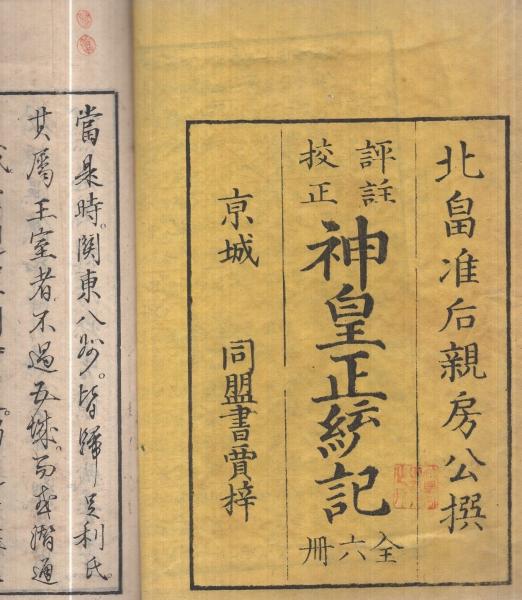 北畠准后親房公撰
評註
校正
神皇正統記
全六冊
京城 同盟書賈梓
當是時。関東八州。皆歸足利氏。
其屬王室者不過五城。而或潛通